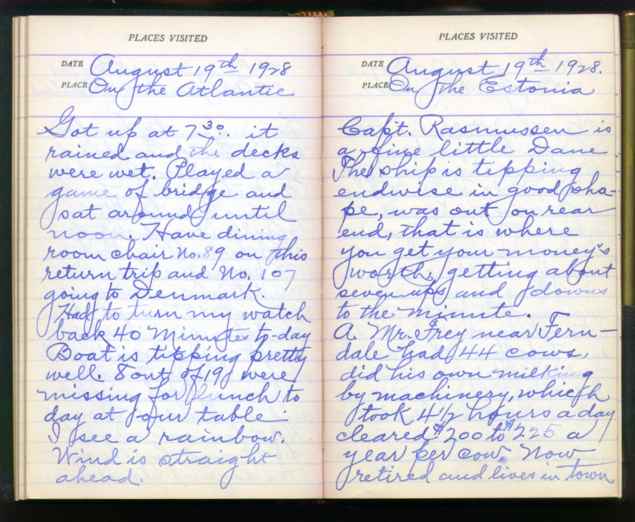 PLACES VISITED
DATE August 19th 1928
PLACE On the Atlantic
Got up at 7 30. it
rained and the decks
were wet. Played a
game of bridge and
sat around until
noon. Have dining
room chair No. 89 on this
return trip and No. 107
going to Denmark.
Had to turn my watch
back 40 Minutes to-day
Boat is tipping pretty
well. 8 out of 19 were
missing for lunch to
day at our table.
I see a rainbow.
Wind is straight
ahead.
PLACES VISITED
DATE August 19th 1928.
PLACE On the Estonia
Capt. Rasmussen is
a fine little Dane
The ship is tipping
endwise in good sha-
pe, was out on rear
end, that is where
you get your money's
worth, getting about
seven ups and downs
to the minute.
A Mr. Frey near Fern-
dale had 44 cows,
did his own milking
by machinery, which
took 4 1/2 hours a day
cleared $200 to $225 a
year per cow. Now
retired and lives in town